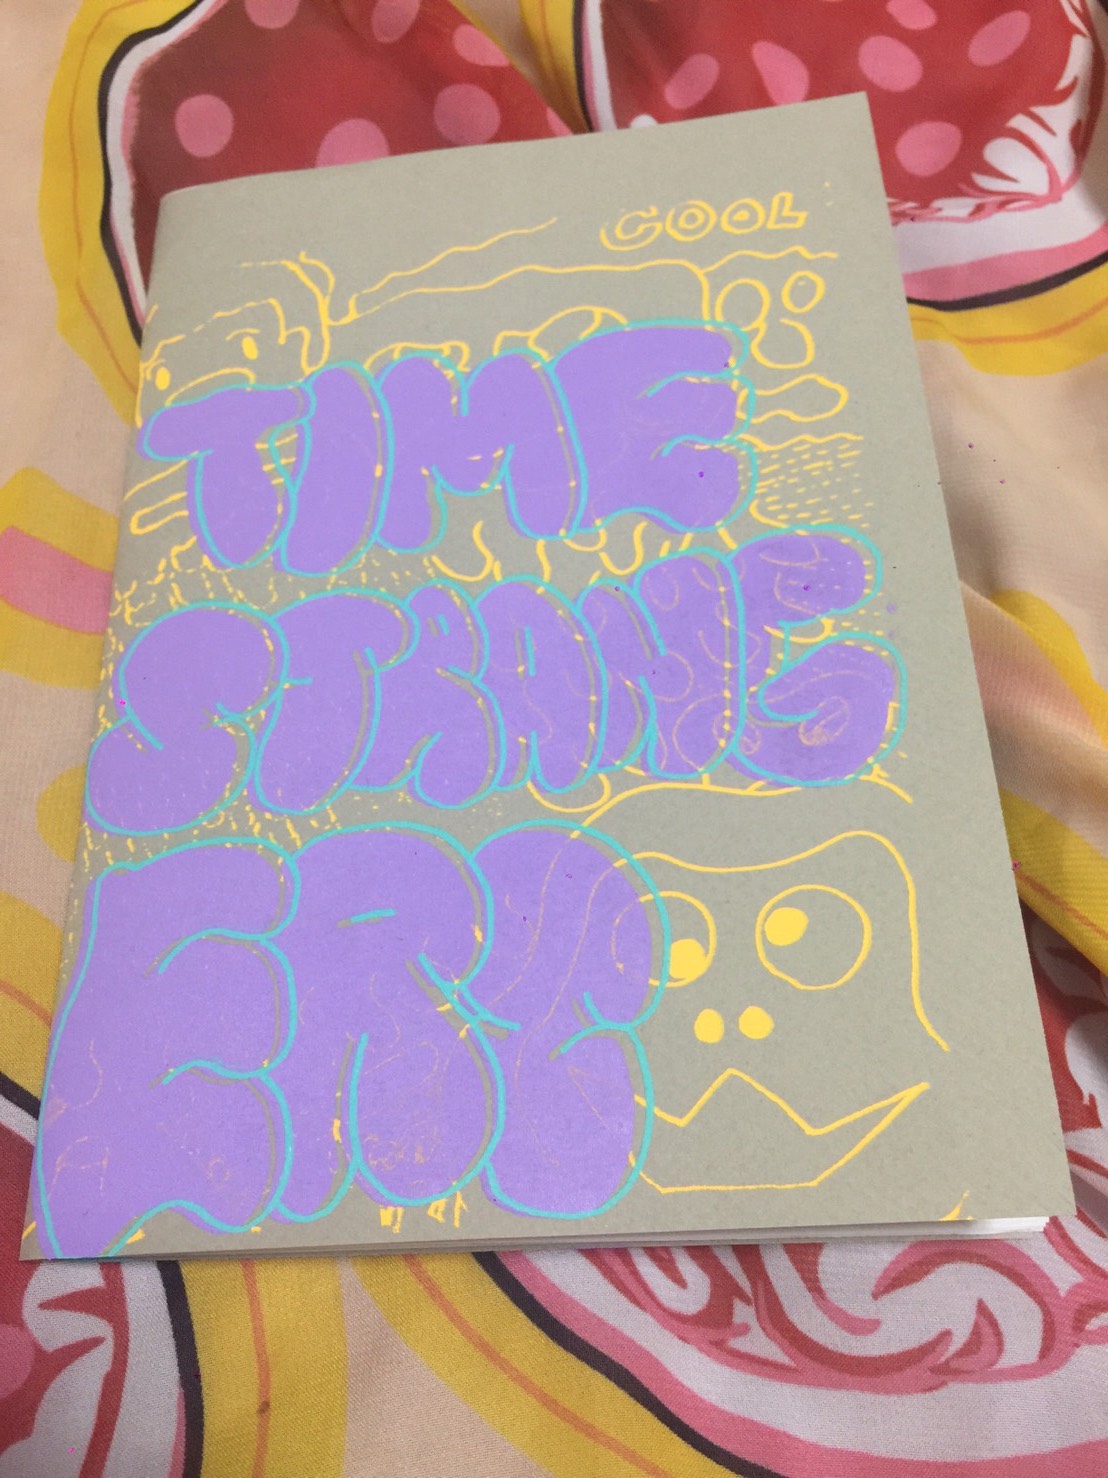 COOL
TIME
STRANG
ERS